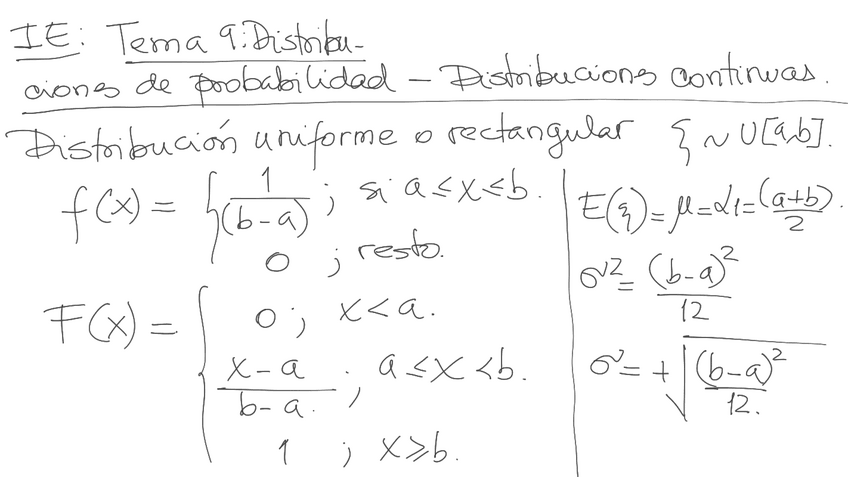 IE: Tema 9: Distribu-
ciones de probabilidad – Distribuciones continuas.
Distribución uniforme o rectangular ξ ~ U[a,b].
f(x) = { 1/(b-a) ; si a ≤ x ≤ b.
0 ; resto.
F(x) = { 0 ; x < a.
(x-a)/(b-a) ; a ≤ x < b.
1 ; x ≥ b.
E(ξ) = μ = α1 = (a+b)/2.
σ² = (b-a)²/12
σ = +√((b-a)²/12.)